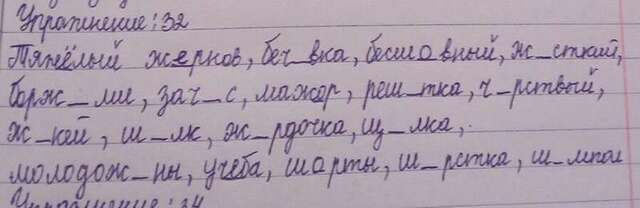 Упражнение: 32
Тяжёлый жернов, беч_вка, бесшовный, ж_сткий,
борж_ми, зач_с, мажор, реш_тка, ч_рствый,
ж_кей, ш_лк, ж_рдочка, щ_лка,.
молодож_ны, учёба, шорты, ш_рстка, ш_мпол
Упражнение: 34